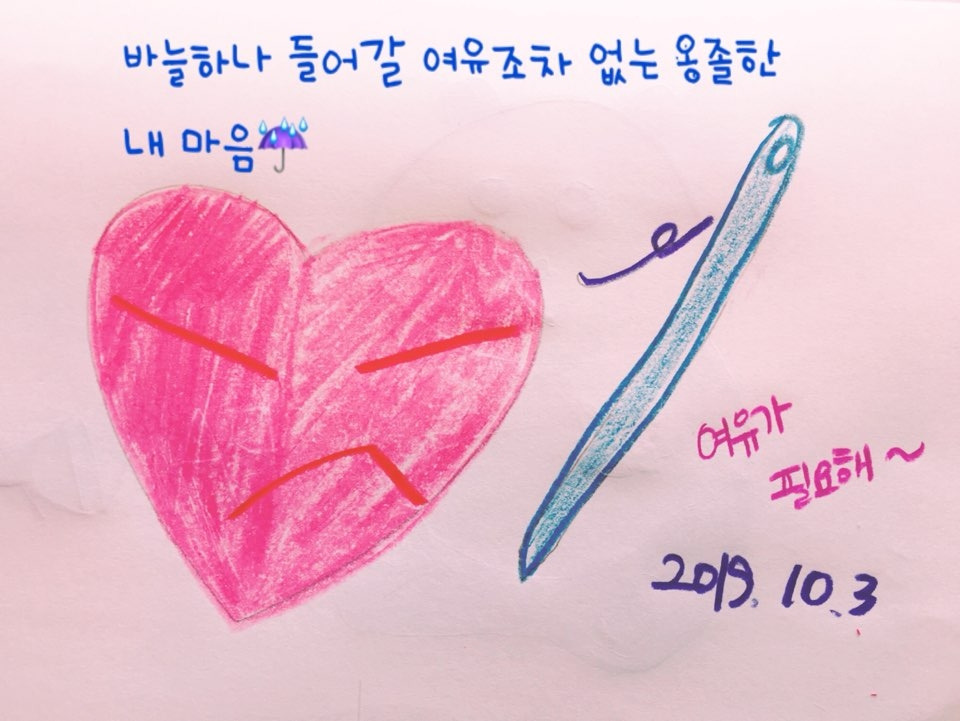 바늘하나 들어갈 여유조차 없는 옹졸한
내 마음☔
여유가
필요해~
2019. 10. 3